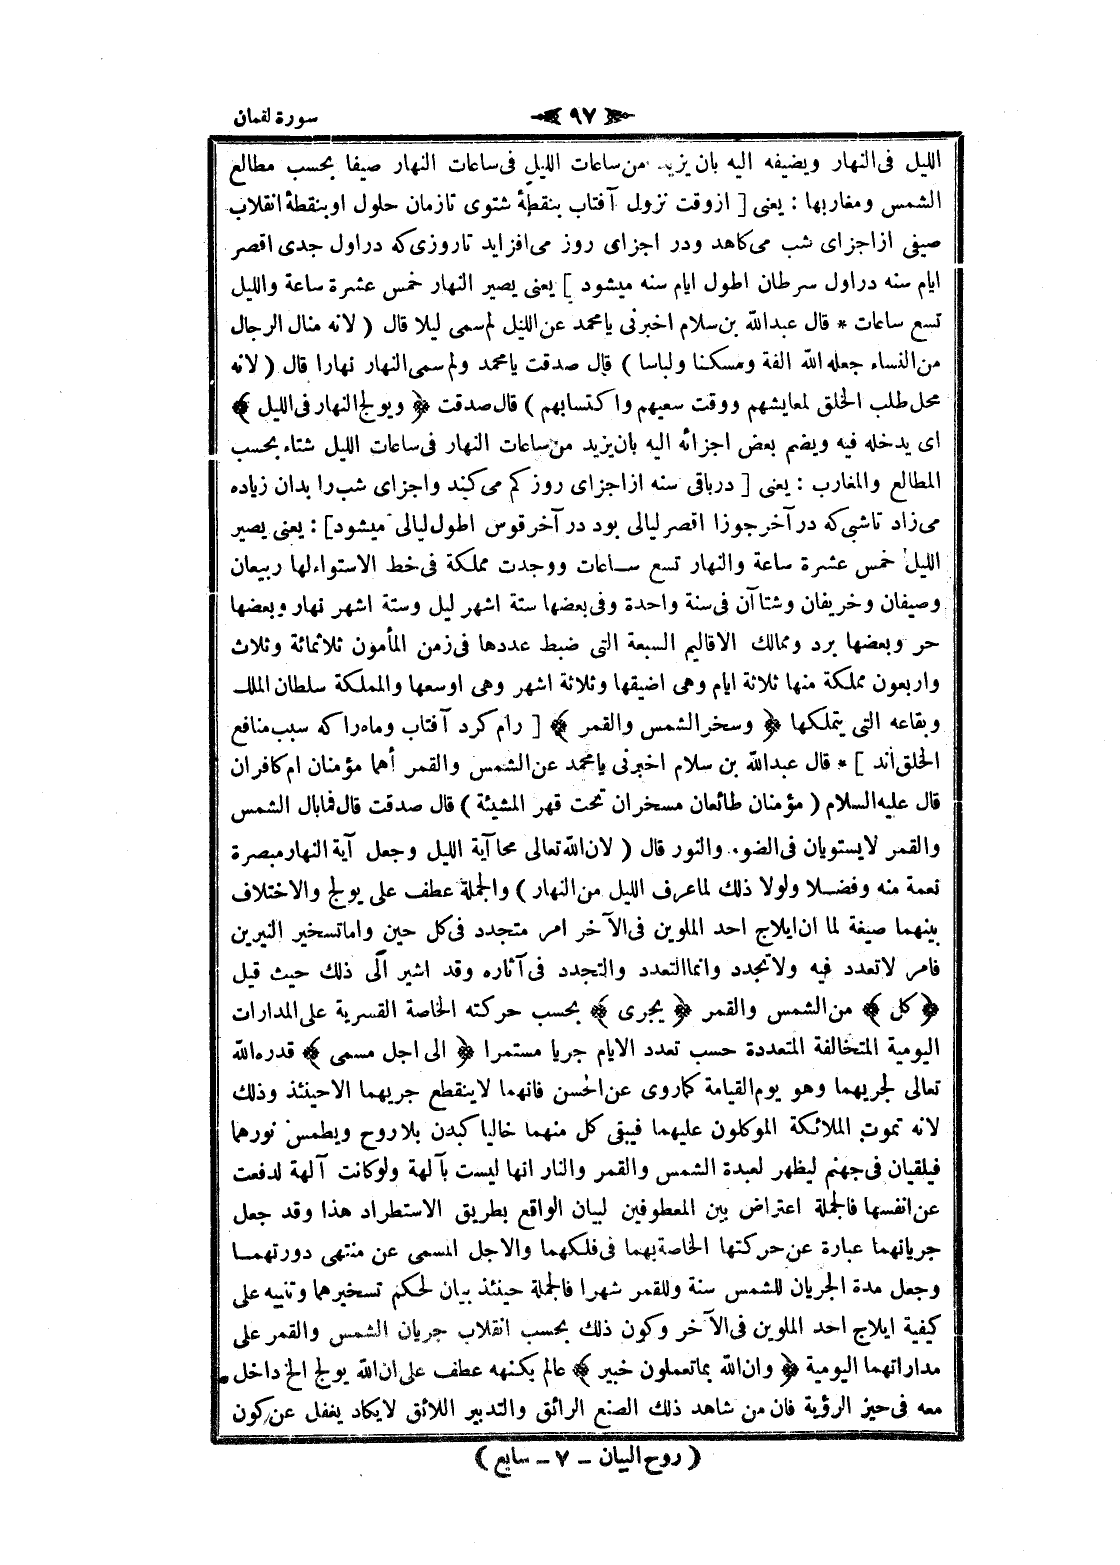 سورة لقمان
٩٧
الليل فى النهار ويضيفه اليه بان يزيد من ساعات الليل فى ساعات النهار صيفا بحسب مطالع
الشمس ومغاربها : يعنى [ ازوقت نزول آفتاب بنقطۀ شتوى تازمان حلول اوبنقطۀ انقلاب
صيفى ازاجزاى شب مى‌كاهد ودر اجزاى روز مى‌افزايد تاروزى كه دراول جدى اقصر
ايام سنه دراول سرطان اطول ايام سنه ميشود ] يعنى يصير النهار خمس عشرة ساعة والليل
تسع ساعات * قال عبدالله بن سلام اخبرنى يامحمد عن الليل لم سمى ليلا قال ( لانه منال الرجال
من النساء جعله الله الفة ومسكنا ولباسا ) قال صدقت يامحمد ولم سمى النهار نهارا قال ( لانه
محل طلب الخلق لمعايشهم ووقت سعيهم واكتسابهم ) قال صدقت ﴿ ويولج النهار فى الليل ﴾
اى يدخله فيه ويضم بعض اجزائه اليه بان يزيد من ساعات النهار فى ساعات الليل شتاء بحسب
المطالع والمغارب : يعنى [ درباقى سنه ازاجزاى روز كم مى‌كند واجزاى شب را بدان زياده
مى‌زاد تاشبى كه درآخر جوزا اقصر ليالى بود درآخر قوس اطول ليالى ميشود ] : يعنى يصير
الليل خمس عشرة ساعة والنهار تسع ساعات ووجدت مملكة فى خط الاستواء لها ربيعان
وصيفان وخريفان وشتاآن فى سنة واحدة وفى بعضها ستة اشهر ليل وستة اشهر نهار وبعضها
حر وبعضها برد وممالك الاقاليم السبعة التى ضبط عددها فى زمن المأمون ثلاثمائة وثلاث
واربعون مملكة منها ثلاثة ايام وهى اضيقها وثلاثة اشهر وهى اوسعها والمملكة سلطان الملك
وبقاعه التى يتملكها ﴿ وسخر الشمس والقمر ﴾ [ رام كرد آفتاب وماه راكه سبب منافع
الخلق‌اند ] * قال عبدالله بن سلام اخبرنى يامحمد عن الشمس والقمر أهما مؤمنان ام كافران
قال عليه السلام ( مؤمنان طائعان مسخران تحت قهر المشيئة ) قال صدقت قال فمابال الشمس
والقمر لايستويان فى الضوء والنور قال ( لان الله تعالى محا آية الليل وجعل آية النهار مبصرة
نعمة منه وفضلا ولولا ذلك لماعرف الليل من النهار ) والجملة عطف على يولج والاختلاف
بينهما صيغة لما ان ايلاج احد الملوين فى الآخر امر متجدد فى كل حين واماتسخير النيرين
فامر لاتعدد فيه ولاتجدد وانما التعدد والتجدد فى آثاره وقد اشير الى ذلك حيث قيل
﴿ كل ﴾ من الشمس والقمر ﴿ يجرى ﴾ بحسب حركته الخاصة القسرية على المدارات
اليومية المتخالفة المتعددة حسب تعدد الايام جريا مستمرا ﴿ الى اجل مسمى ﴾ قدره الله
تعالى لجريهما وهو يوم القيامة كماروى عن الحسن فانهما لاينقطع جريهما الاحينئذ وذلك
لانه تموت الملائكة الموكلون عليهما فيبقى كل منهما خاليا كبدن بلاروح ويطمس نورهما
فيلقيان فى جهنم ليظهر لعبدة الشمس والقمر والنار انها ليست بآلهة ولوكانت آلهة لدفعت
عن انفسها فالجملة اعتراض بين المعطوفين لبيان الواقع بطريق الاستطراد هذا وقد جعل
جريانهما عبارة عن حركتها الخاصة بهما فى فلكهما والاجل المسمى عن منتهى دورتهما
وجعل مدة الجريان للشمس سنة وللقمر شهرا فالجملة حينئذ بيان لحكم تسخيرهما وتنبيه على
كيفية ايلاج احد الملوين فى الآخر وكون ذلك بحسب انقلاب جريان الشمس والقمر على
مداراتهما اليومية ﴿ وان الله بماتعملون خبير ﴾ عالم بكنهه عطف على ان الله يولج الخ داخل
معه فى حيز الرؤية فان من شاهد ذلك الصنع الرائق والتدبير اللائق لايكاد يغفل عن كون
( روح البيان – ٧ – سابع )